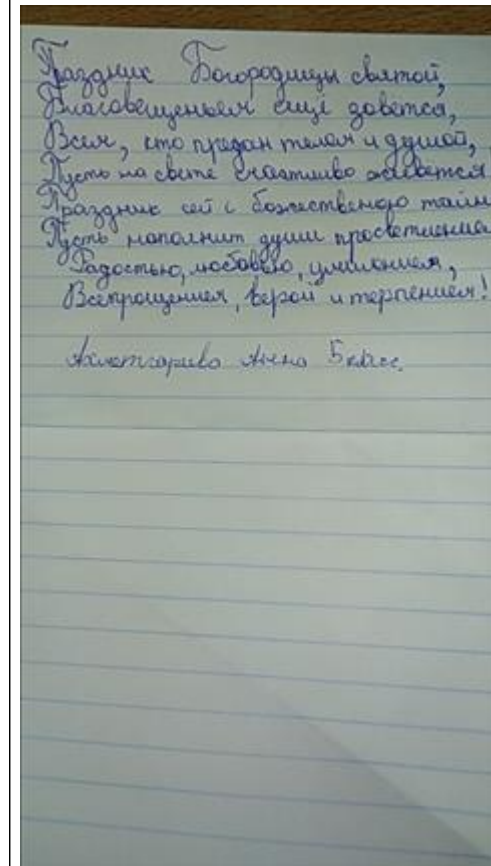 Праздник Богородицы святой,
Благовещеньем ещё зовется,
Всем, кто предан телом и душой,
Пусть на свете счастливо живется
Праздник сей с божественною тайн
Пусть наполнит души просветлением
Радостью, любовью, умилением,
Всепрощением, верой и терпением!
Анна 5 класс.